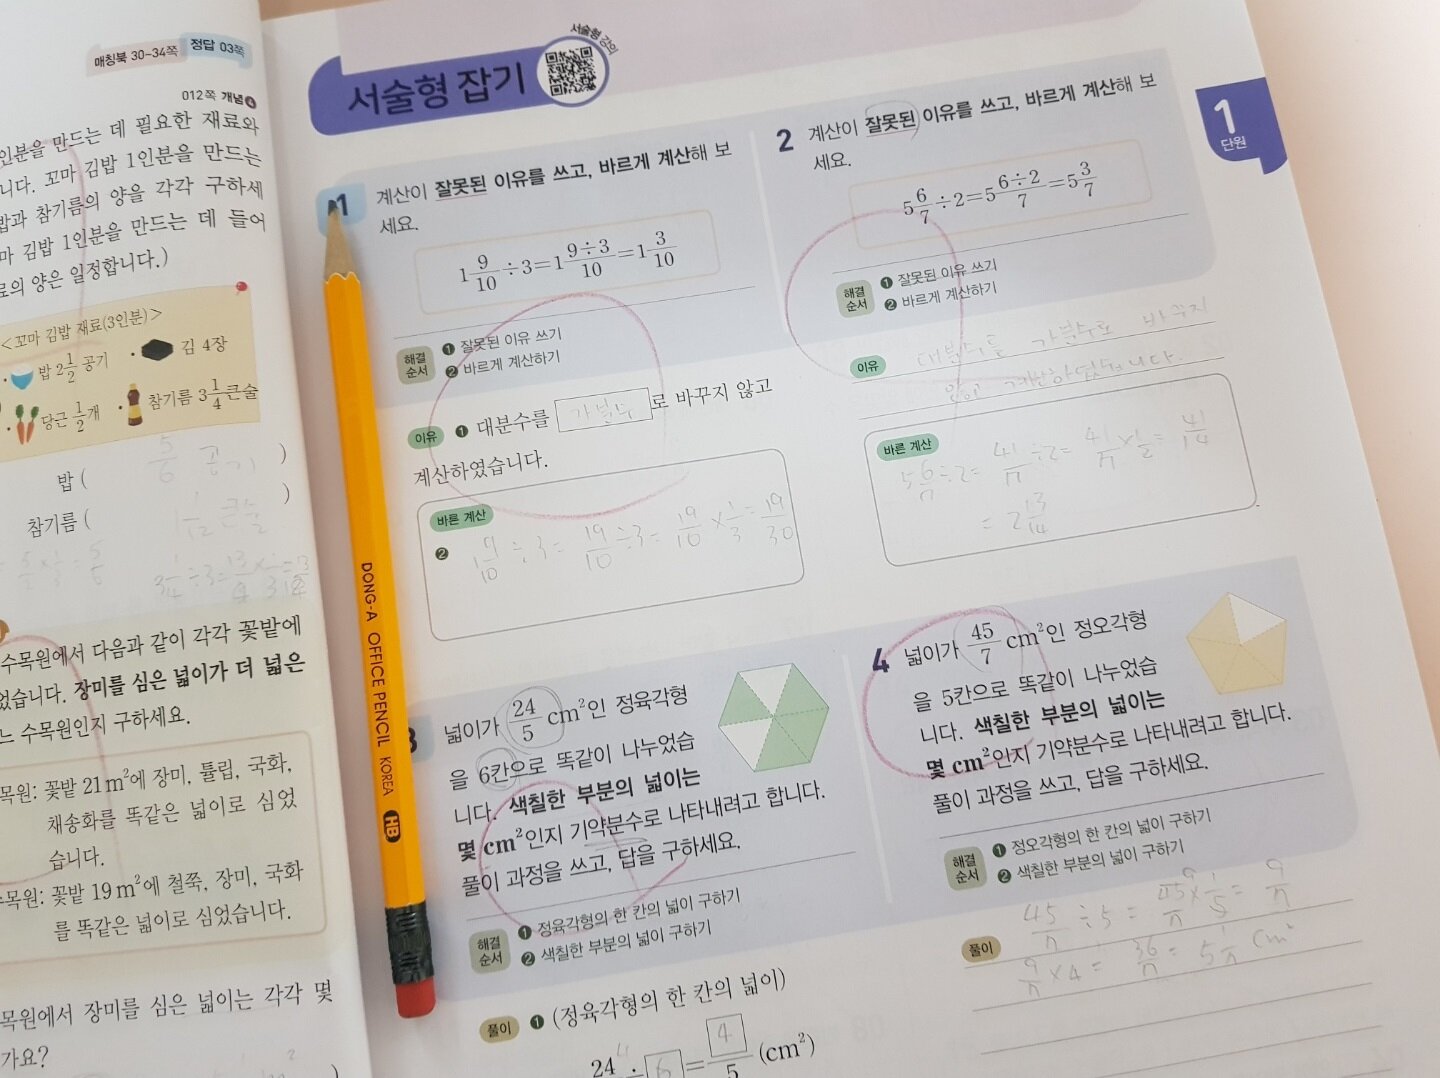 매칭북 30~34쪽 정답 03쪽
012쪽 개념 4
인분을 만드는 데 필요한 재료와
니다. 꼬마 김밥 1인분을 만드는
밥과 참기름의 양을 각각 구하세
마 김밥 1인분을 만드는 데 들어
료의 양은 일정합니다.)
<꼬마 김밥 재료(3인분)>
밥 2 1/2 공기
김 4장
당근 1/2개
참기름 3 1/4 큰술
밥 ( 5/6 공기 )
참기름 ( 1 1/12 큰술 )
3 1/4 ÷3=
수목원에서 다음과 같이 각각 꽃밭에
었습니다. 장미를 심은 넓이가 더 넓은
느 수목원인지 구하세요.
목원: 꽃밭 21 m²에 장미, 튤립, 국화,
채송화를 똑같은 넓이로 심었
습니다.
수목원: 꽃밭 19 m²에 철쭉, 장미, 국화
를 똑같은 넓이로 심었습니다.
목원에서 장미를 심은 넓이는 각각 몇
가요?
서술형 잡기
서술형 강의
1
단원
1
계산이 잘못된 이유를 쓰고, 바르게 계산해 보
세요.
1 9/10 ÷3=1 9÷3/10=1 3/10
해결
순서
❶ 잘못된 이유 쓰기
❷ 바르게 계산하기
이유 ❶ 대분수를 가분수 로 바꾸지 않고
계산하였습니다.
바른 계산
❷ 1 9/10 ÷3= 19/10 ÷3= 19/10 × 1/3 = 19/30
2
계산이 잘못된 이유를 쓰고, 바르게 계산해 보
세요.
5 6/7 ÷2=5 6÷2/7=5 3/7
해결
순서
❶ 잘못된 이유 쓰기
❷ 바르게 계산하기
이유 대분수를 가분수로 바꾸지
않고 계산하였습니다.
바른 계산
5 6/7 ÷2= 41/7 ÷2= 41/7 × 1/2 = 41/14
= 2 13/14
DONG-A OFFICE PENCIL KOREA HB
3
넓이가 24/5 cm²인 정육각형
을 6칸으로 똑같이 나누었습
니다. 색칠한 부분의 넓이는
몇 cm²인지 기약분수로 나타내려고 합니다.
풀이 과정을 쓰고, 답을 구하세요.
해결
순서
❶ 정육각형의 한 칸의 넓이 구하기
❷ 색칠한 부분의 넓이 구하기
풀이 ❶ (정육각형의 한 칸의 넓이)
24 ÷ 6 = 4/5 (cm²)
4
넓이가 45/7 cm²인 정오각형
을 5칸으로 똑같이 나누었습
니다. 색칠한 부분의 넓이는
몇 cm²인지 기약분수로 나타내려고 합니다.
풀이 과정을 쓰고, 답을 구하세요.
해결
순서
❶ 정오각형의 한 칸의 넓이 구하기
❷ 색칠한 부분의 넓이 구하기
풀이
45/7 ÷5 = 45/7 × 1/5 = 9/7
9/7 ×4 = 36/7 = 5 1/7 cm²